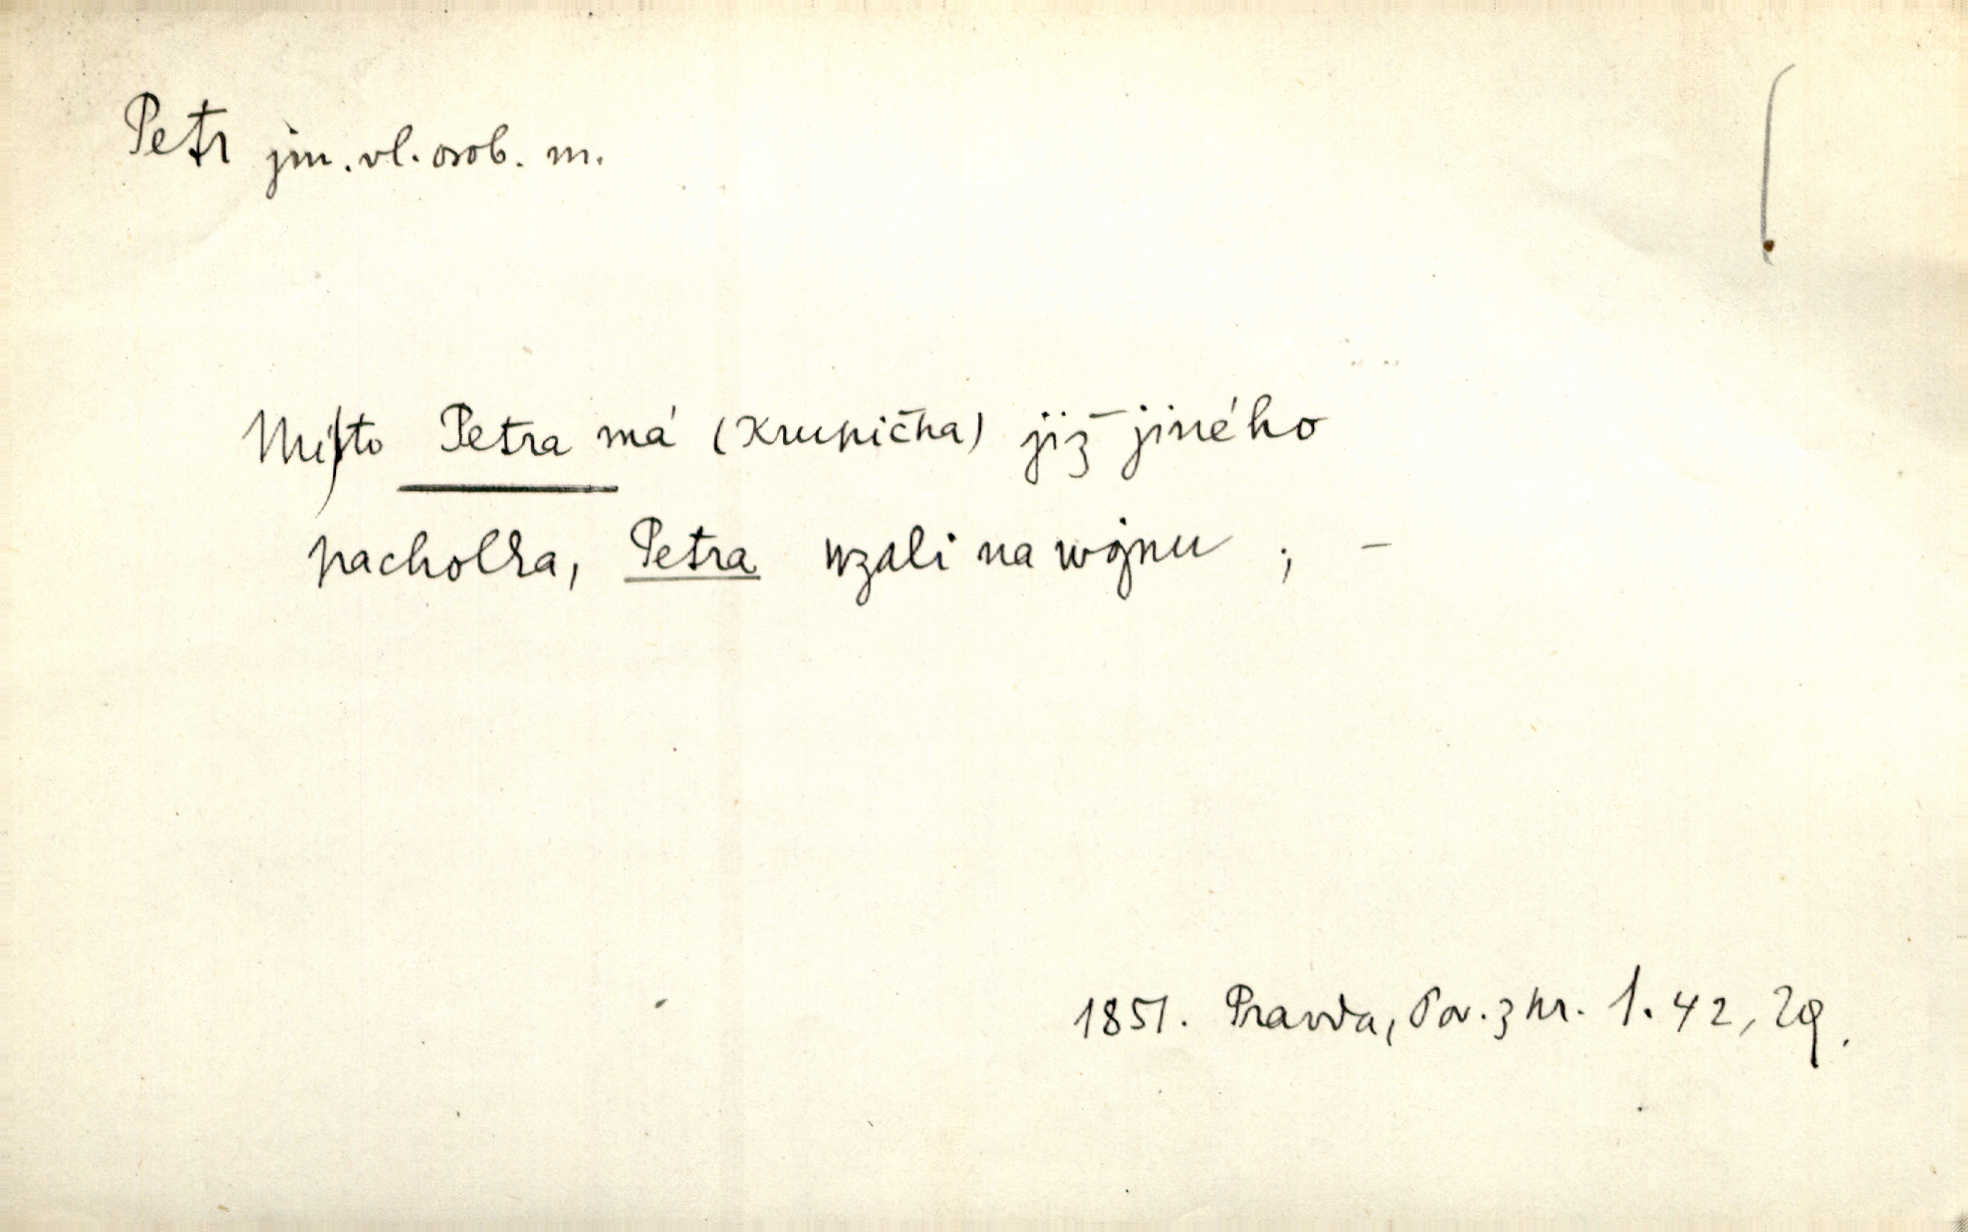 Petr jm. vl. osob. m.
Místo Petra má (Krupička) již jiného
pacholka, Petra wzali na wojnu ; –
1851. Pravda, Pov. z kr. 1. 42, 29.